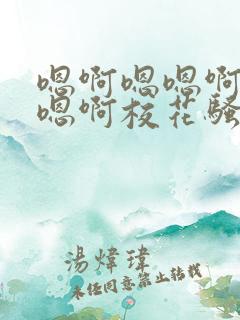 嗯啊嗯嗯啊
嗯啊校花骚
湯煒瑋
未经同意禁止转载